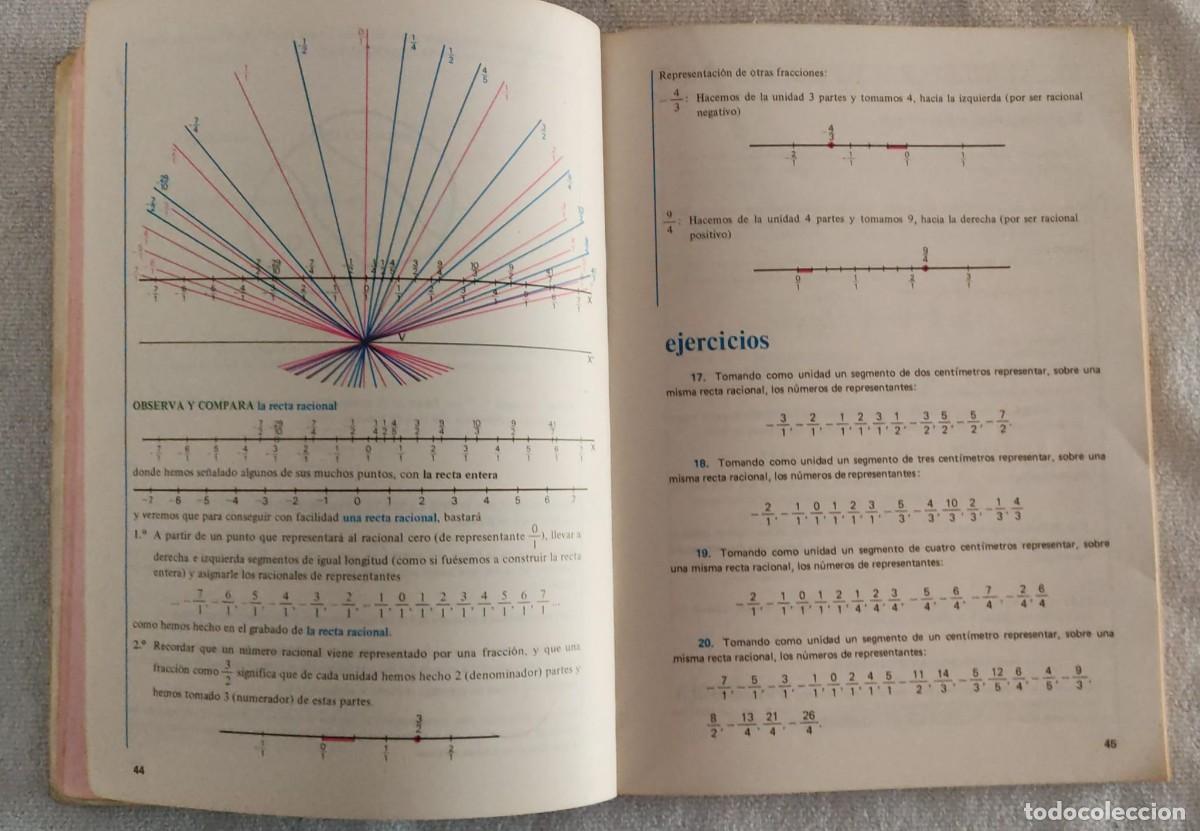 OBSERVA Y COMPARA la recta racional
donde hemos señalado algunos de sus muchos puntos, con la recta entera
-7 -6 -5 -4 -3 -2 -1 0 1 2 3 4 5 6 7
y veremos que para conseguir con facilidad una recta racional, bastará
1.º A partir de un punto que representará al racional cero (de representante 0/1), llevar a
derecha e izquierda segmentos de igual longitud (como si fuésemos a construir la recta
entera) y asignarle los racionales de representantes
... -7/1, -6/1, -5/1, -4/1, -3/1, -2/1, -1/1, 0/1, 1/1, 2/1, 3/1, 4/1, 5/1, 6/1, 7/1 ...
como hemos hecho en el grabado de la recta racional.
2.º Recordar que un número racional viene representado por una fracción, y que una
fracción como 3/2 significa que de cada unidad hemos hecho 2 (denominador) partes y
hemos tomado 3 (numerador) de estas partes.
3/2
-1/1 0/1 1/1 2/1
44
Representación de otras fracciones:
-4/3: Hacemos de la unidad 3 partes y tomamos 4, hacia la izquierda (por ser racional
negativo)
-4/3
-2/1 -1/1 0/1 1/1
9/4: Hacemos de la unidad 4 partes y tomamos 9, hacia la derecha (por ser racional
positivo)
9/4
0/1 1/1 2/1 3/1
ejercicios
17. Tomando como unidad un segmento de dos centímetros representar, sobre una
misma recta racional, los números de representantes:
-3/1, -2/1, -1/1, 2/1, 3/1, 1/2, -3/2, 5/2, -5/2, -7/2.
18. Tomando como unidad un segmento de tres centímetros representar, sobre una
misma recta racional, los números de representantes:
-2/1, -1/1, 0/1, 1/1, 2/1, 3/1, -5/3, -4/3, 10/3, 2/3, -1/3, 4/3
19. Tomando como unidad un segmento de cuatro centímetros representar, sobre
una misma recta racional, los números de representantes:
-2/1, -1/1, 0/1, 1/1, 2/1, 1/4, 2/4, 3/4, -5/4, -6/4, -7/4, -2/4, 6/4
20. Tomando como unidad un segmento de un centímetro representar, sobre una
misma recta racional, los números de representantes:
-7/1, -5/1, -3/1, -1/1, 0/1, 2/1, 4/1, 5/1, -11/2, 14/3, -5/3, 12/5, 6/4, -4/5, -9/3,
8/2, -13/4, 21/4, -26/4.
45
todocoleccion